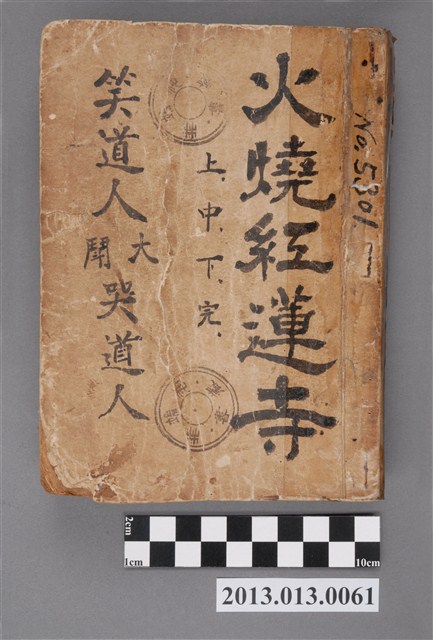 火燒紅蓮寺
No. 5301.
上、中、下、完、
笑道人
大
鬧
哭道人
2cm
1cm
10cm
2013.013.0061